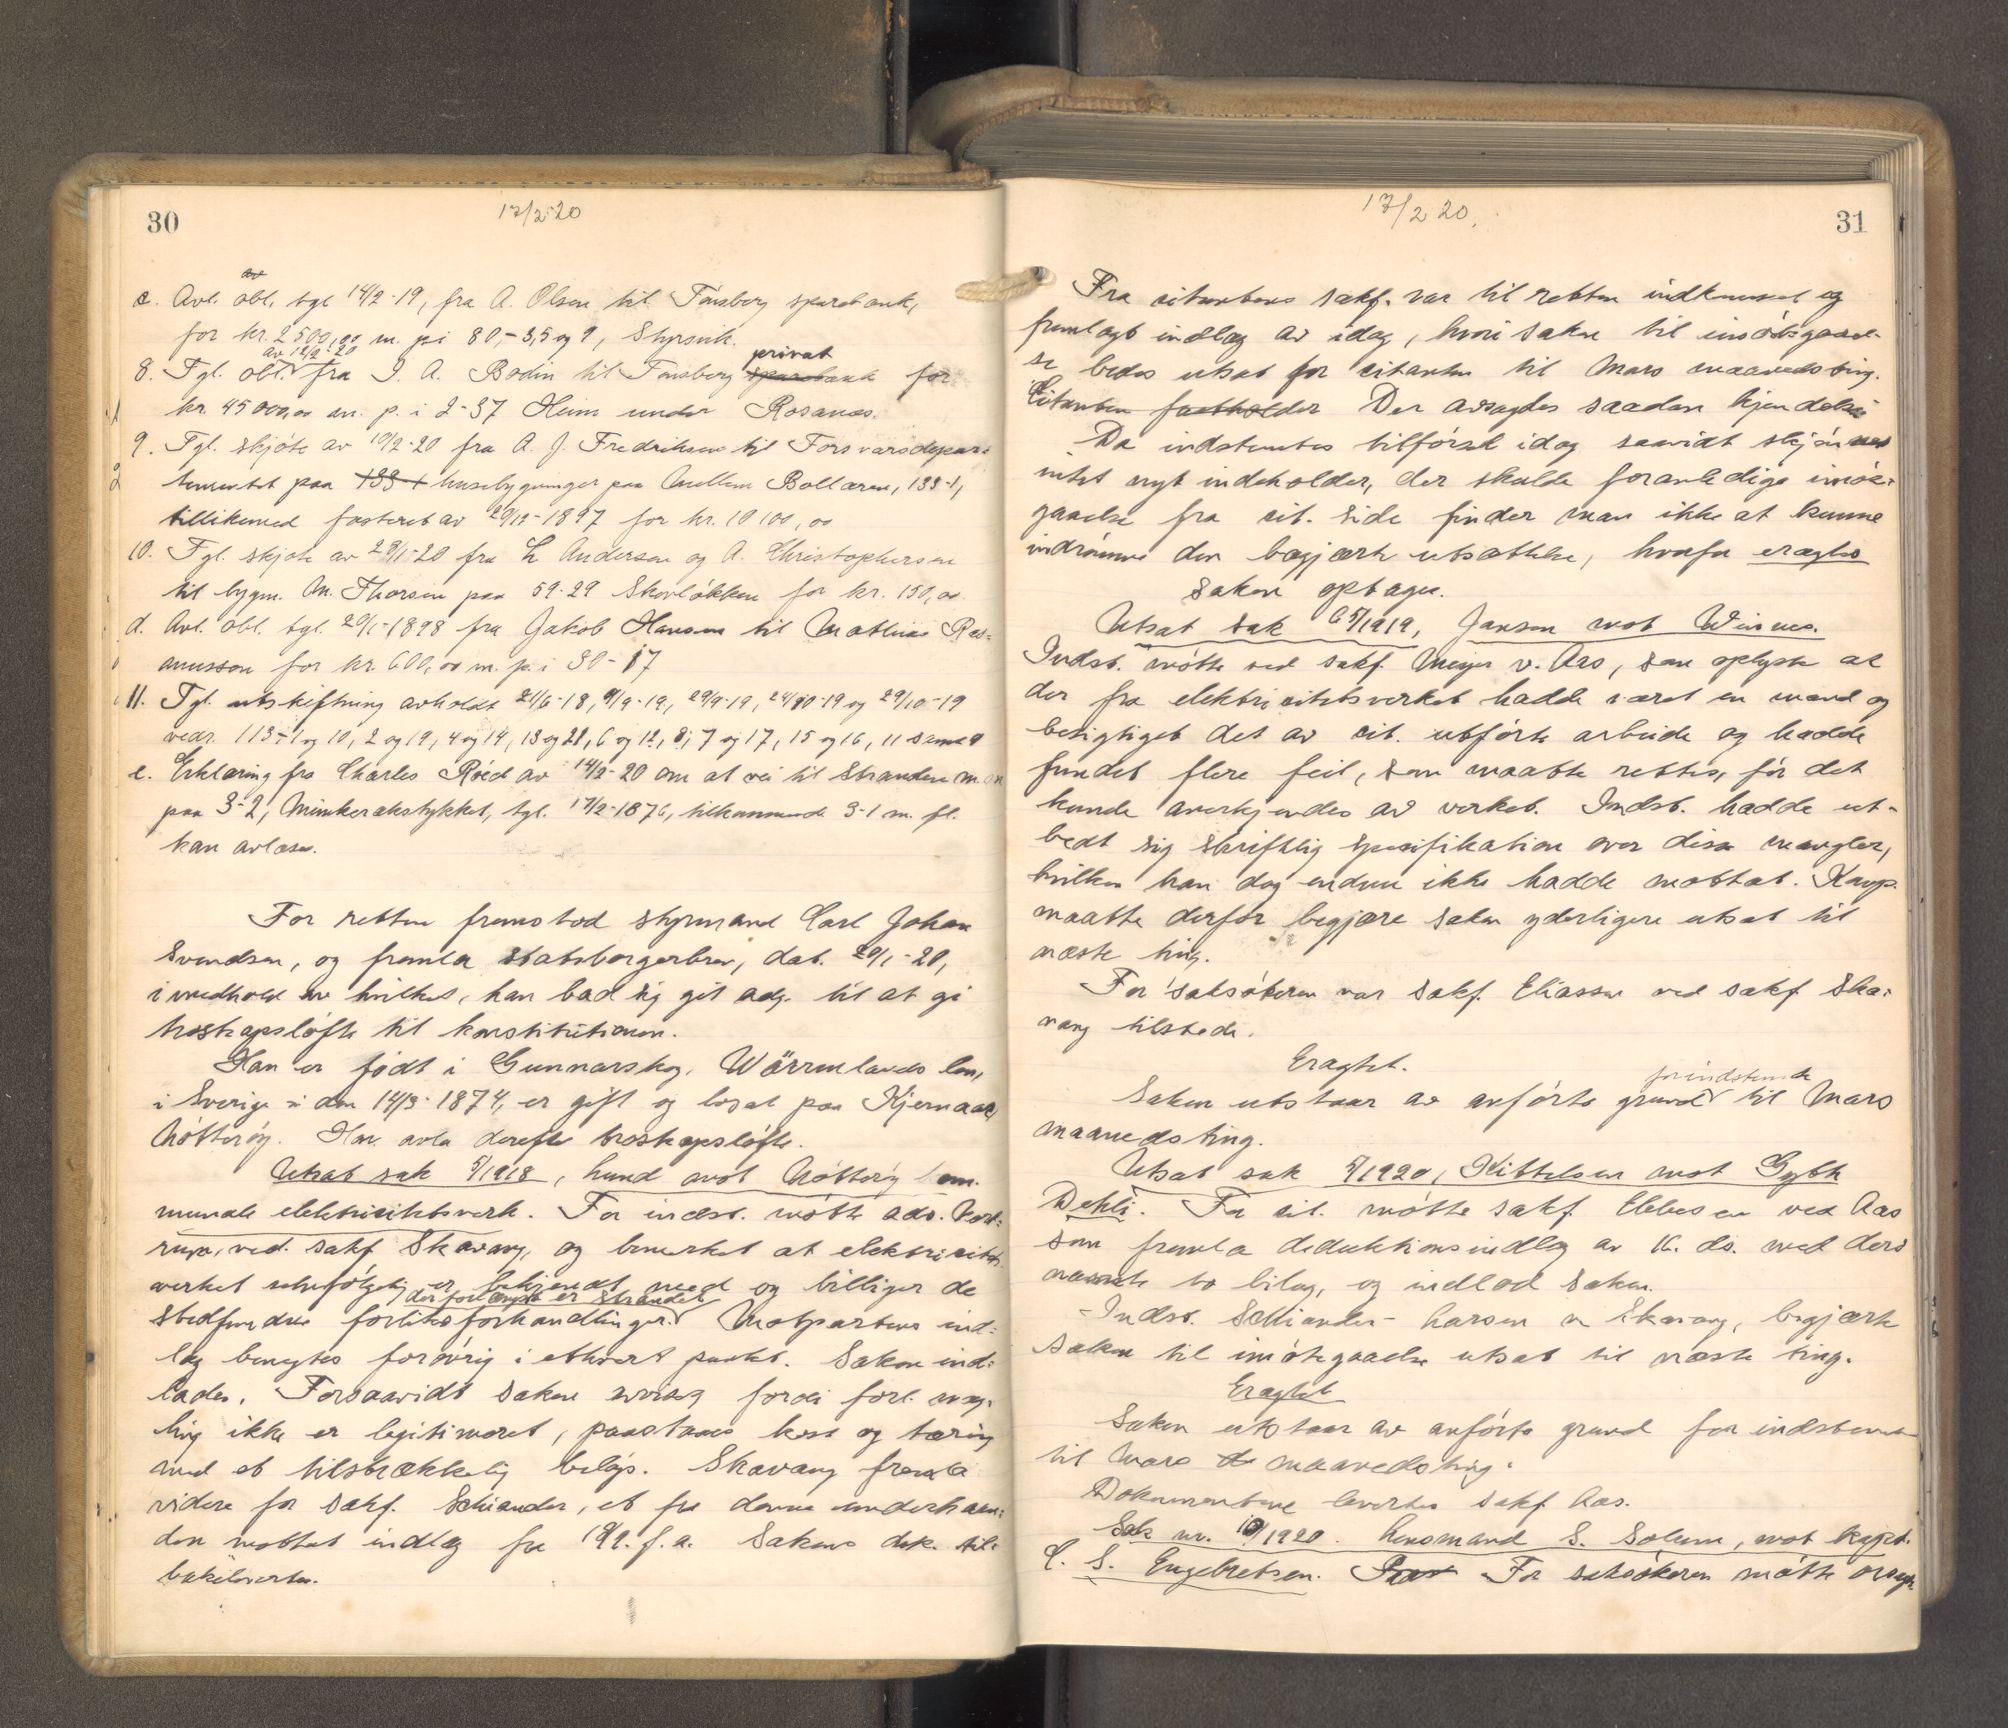 30
17/2-20
c. Avl. av obl. tgl 14/2-19, fra A. Olsen til Tönsberg sparebank,
for kr. 2500,00 m. p. i 80,-3,5 og 9, Styrsvik.
av 12/2-20 privat
8. Tgl. obl. fra J. A. Bodin til Tönsberg sparebank for
kr. 45000,00 m. p. i 2-37 Heim under Rosanes.
9. Tgl. skjöte av 10/2-20 fra A. J. Fredriksen til Forsvarsdepar-
tementet paa 133-1 husebygninger paa Mellem Bollæren, 133-1,
tillikemed festeret av 29/12-1897 for kr. 10100,00
10. Tgl. skjöte av 28/1-20 fra L. Andersen og A. Christophersen
til bygm. M. Thorsen paa 59-29 Skovløkken for kr. 150,00
d. Avl. obl. tgl. 20/1-1898 fra Jakob Hansen til Mathias Ras-
mussen for kr 600,00 m. p. i 30-17
11. Tgl. utskiftning avholdt 21/6-18, 9/9-19, 29/9-19, 24/10-19 og 29/10-19
vedr. 113-1 og 10, 2 og 19, 4 og 14, 13 og 21, 6 og 12, 8, 7 og 17, 15 og 16, 11 samt 9
e. Erklæring fra Charles Röed av 14/2-20 om at vei til Stranden m. m
paa 3-2, Munkerekstykket, tgl. 17/2-1876, tilkommende 3-1 m. fl.
kan avlæses.
For retten fremstod styrmand Carl Johan
Svendsen, og fremla statsborgerbrev, dat. 20/1-20,
i medhold av hvilket, han bad sig git adg. til at gi
troskapslöfte til konstitutionen.
Han er født i Gunnarskog, Wärmlands len,
i Sverige den 14/3-1874, er gift og bosat paa Kjernaas
Nötteröy. Han avla derefter troskapslöfte.
Utsat sak 5/1918, Lund mot Nötteröy kom-
munale elektricitetsverk. For indst. mötte adv.
ved sakf. Skavang, og bemerket at elektricitets-
verket selvfølgelig er bekjendt med og billiger de
der forlængst er strandet
stedfundne forliksforhandlinger. Motpartens ind-
læg benegtes forövrig i ethvert punkt. Saken ind-
lades. Forsaavidt saken avvises fordi forl. mæg-
ling ikke er legitimeret, paastaaes kost og tæring
med et tilstrækkelig beløp. Skavang fremla
videre for sakf. Schiander, et fra denne underhaan-
den mottat indlæg fra 19/9. f. a. Sakens dok. til-
bakelevertes.

31
17/2 20.
Fra citantens sakf. var til retten indkommet og
fremlagt indlæg av idag, hvori saken til imötegaael-
se bedes utsat for citanten til Mars maanedsting.
Citanten fastholder Der avsagdes saadan kjendelse
Da indstemtes tilförsel idag saavidt skjönnes
intet nyt indeholder, der skulde foranledige imöte-
gaaelse fra cit. side finder man ikke at kunne
indrömme den begjærte utsættelse, hvorfor eragtes
Saken optages.
Utsat sak 65/1919, Jansen mot Winnes.
Indst. mötte ved sakf. Meyer v. Aas, som oplyste at
der fra elektricitetsverket hadde været en mand og
besigtiget det av cit. utförte arbeide og hadde
fundet flere feil, som maatte rettes, för det
kunde anerkjendes av verket. Indst. hadde ut-
bedt sig skriftlig spesifikation over disse mangler,
hvilken han dog endnu ikke hadde mottat. Komp.
maatte derfor begjære saken yderligere utsat til
næste ting.
For saksökeren var sakf. Eliassen ved sakf. Ska-
vang tilstede.
Eragtet.
for indstemte
Saken utstaar av anförte grund til Mars
maanedsting.
Utsat sak 5/1920, Kittelsen mot Gybth
Dehli. For cit. mötte sakf. Ebbesen ved Aas
som fremla deduktionsindlæg av 16. ds. med deri
nævnte to bilag, og indlod saken.
Indst. Schiander-Larsen v. Skavang, begjærte
saken til imötegaaelse utsat til næste ting.
Eragtet
Saken utstaar av anförte grund for indstevnte
til Mars maanedsting.
Dokumentene levertes sakf. Aas.
Sak nr. 10/1920. Lensmand S. Solum, mot kapt.
C. S. Engebretsen. For saksökeren mötte